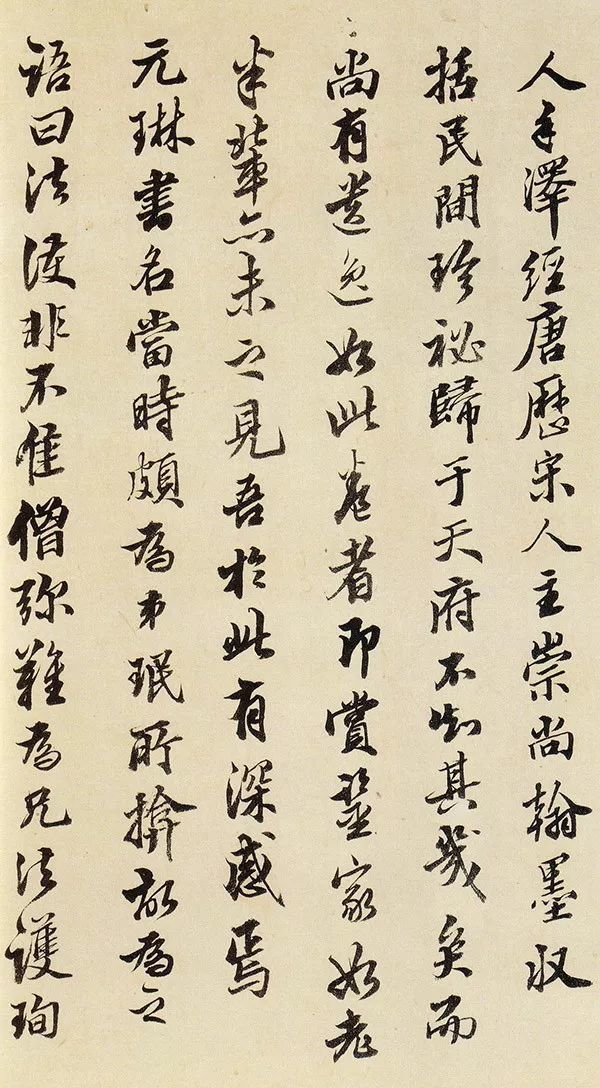 人手澤經唐歷宋人主崇尚翰墨収
括民間珍祕歸于天府不知其幾矣而
尚有遺逸如此卷者即賞鑒家如老
米輩亦未之見吾於此有深感焉
元琳書名當時頗為弟珉所揜故為之
語曰法護非不佳僧彌難為兄法護珣